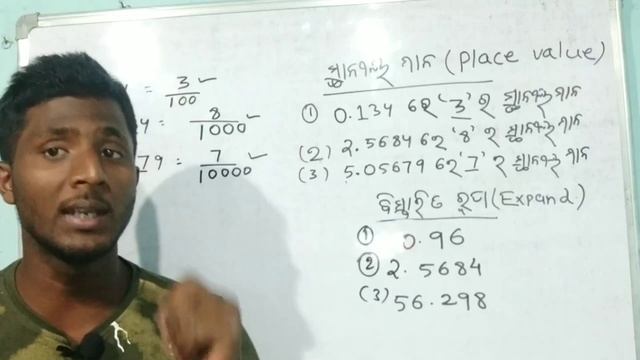 = 3/100 ✓
4 = 8/1000 ✓
79 = 7/10000 ✓
ସ୍ଥାନୀୟ ମାନ (Place value)
① 0.134 ରେ '3' ର ସ୍ଥାନୀୟ ମାନ
(2) 2.5684 ରେ '8' ର ସ୍ଥାନୀୟ ମାନ
(3) 5.05679 ରେ '7' ର ସ୍ଥାନୀୟ ମାନ
ବିସ୍ତାରିତ ରୂପ (Expand)
① 0.96
② 2.5684
(3) 56.298